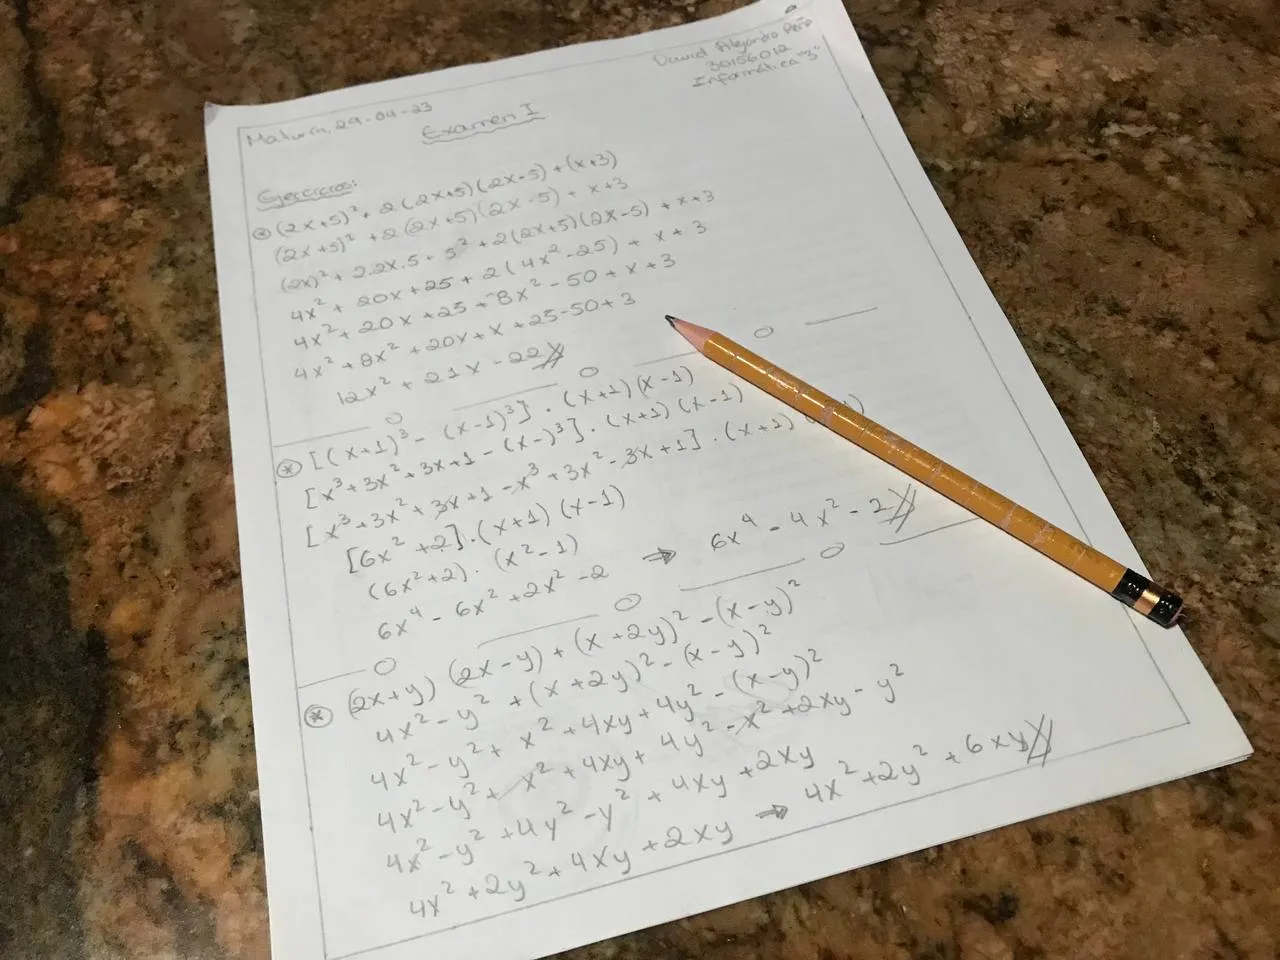 Maturín, 29-04-23
David Alejandro Peña
30156012
Informática "3"
Examen I
Ejercicios:
(2x+5)² + 2(2x+5)(2x-5) + (x+3)
(2x+5)² + 2(2x+5)(2x-5) + x+3
(2x)² + 2.2x.5 + 5² + 2(2x+5)(2x-5) + x+3
4x² + 20x + 25 + 2(4x²-25) + x + 3
4x² + 20x + 25 + 8x² - 50 + x + 3
4x² + 8x² + 20x + x + 25 - 50 + 3
12x² + 21x - 22
[(x+1)³ - (x-1)³] . (x+1)(x-1)
[x³+3x²+3x+1 - (x-)³] . (x+1)(x-1)
[x³+3x²+3x+1 - x³+3x²-3x+1] . (x+1)
[6x²+2] . (x+1)(x-1)
(6x²+2) . (x²-1)
6x⁴ - 6x² + 2x² - 2 ⇒ 6x⁴ - 4x² - 2
(2x+y)(2x-y) + (x+2y)² - (x-y)²
4x² - y² + (x+2y)² - (x-y)²
4x² - y² + x² + 4xy + 4y² - (x-y)²
4x² - y² + x² + 4xy + 4y² - x² + 2xy - y²
4x² - y² + 4y² - y² + 4xy + 2xy
4x² + 2y² + 4xy + 2xy ⇒ 4x² + 2y² + 6xy